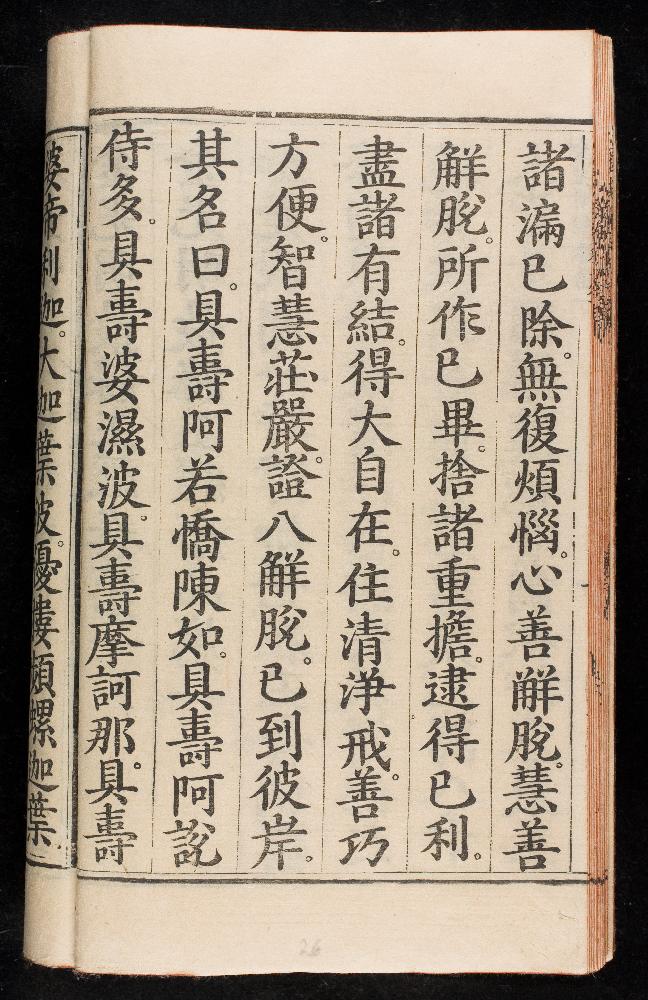 諸漏已除。無復煩惱。心善解脫。慧善
解脫。所作已畢。捨諸重擔。逮得已利。
盡諸有結。得大自在。住清淨戒。善巧
方便。智慧莊嚴。證八解脫。已到彼岸。
其名曰。具壽阿若憍陳如。具壽阿說
侍多。具壽婆濕波。具壽摩訶那。具壽
婆帝利迦。大迦葉波。優樓頻螺迦葉。
26